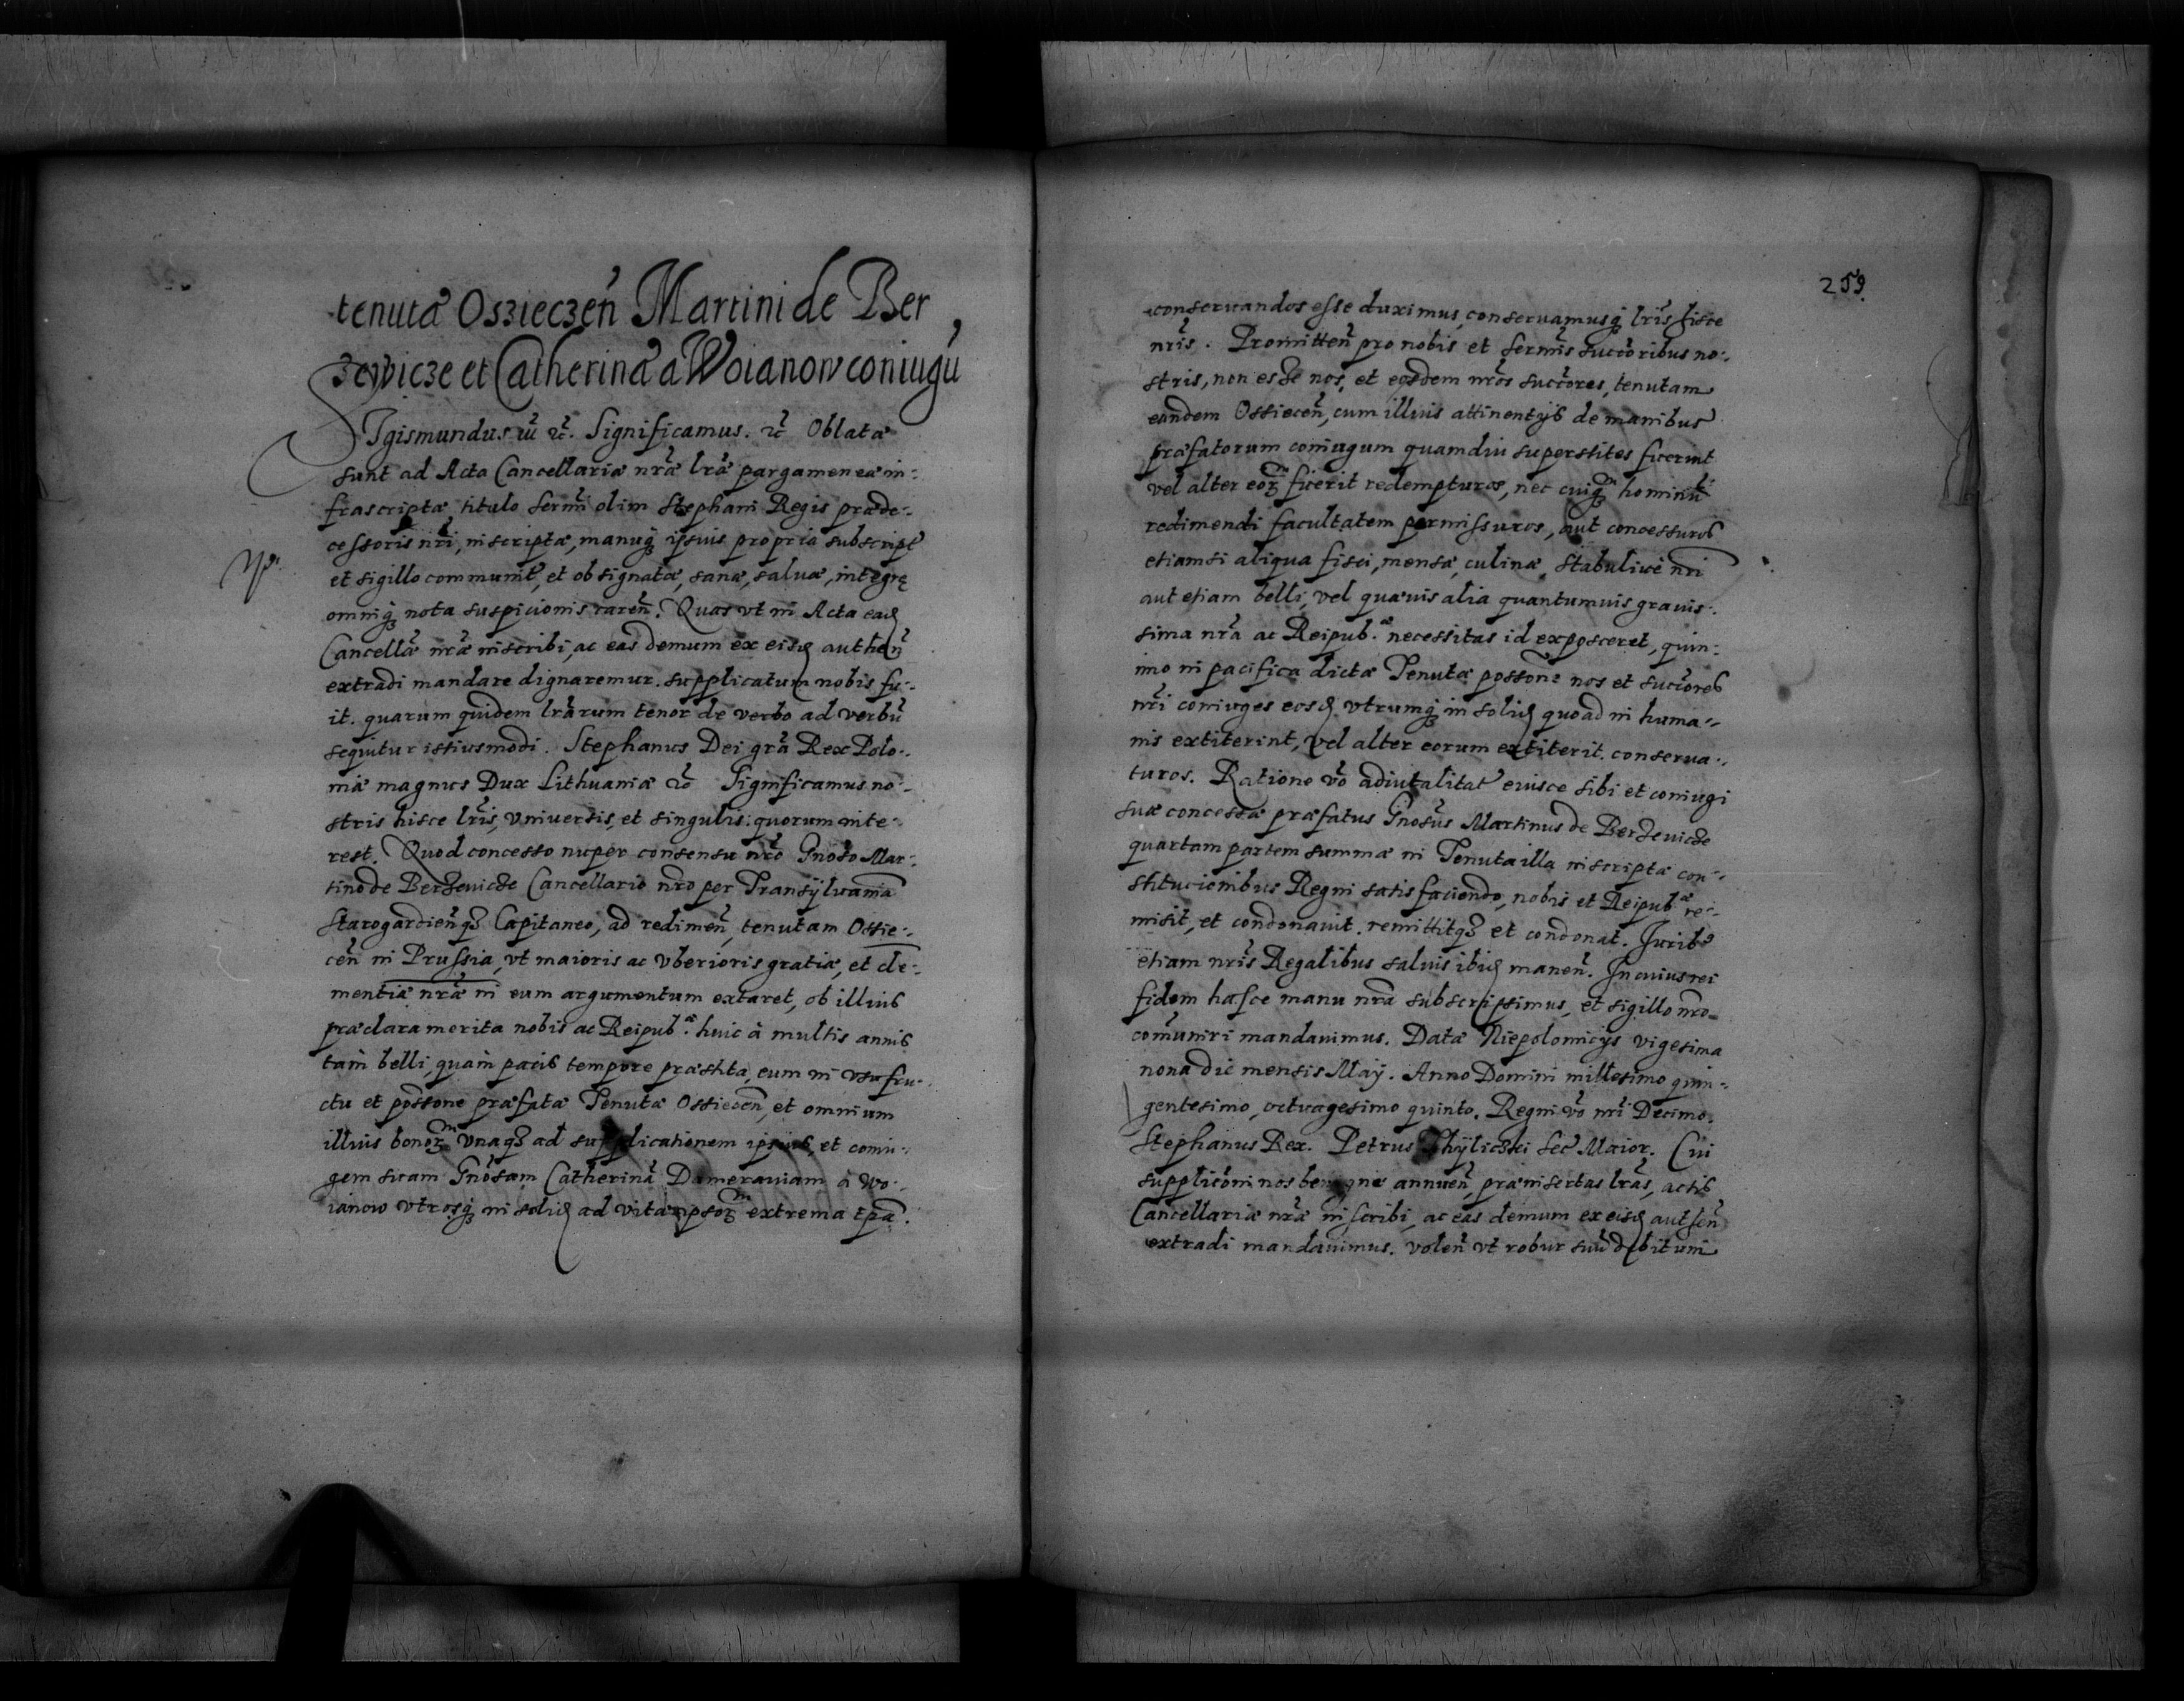 tenutæ Oszieczeń Martini de Ber
zewicze et Catherinæ a Woianow coniugũ
Sigismundus ꝛc̃. Significamus. ꝛc̃ Oblatæ
sunt ad Acta Cancellariæ nr̃æ lr̃æ pargameneæ in-
frascriptæ, titulo serm̃i olim Stephani Regis præde-
cessoris nr̃i, inscriptæ, manuq; ipsius propria subscript
et sigillo communit, et obsignatæ, sanæ, saluæ, integrę
omniq; nota suspicionis caren̄. Quas vt in Acta ead
Cancellæ nr̃æ inscribi, ac eas demum ex eisd authen̄
extradi mandare dignaremur. supplicatum nobis fu-
it. quarum quidem lr̃arum tenor de verbo ad verbũ
sequitur istiusmodi. Stephanus Dei gr̃a Rex Polo-
niæ magnus Dux Lithuaniæ ꝛc̃ Significamus no-
stris hisce lr̃is, vniuersis, et singulis: quorum inte-
rest. Quod concesso nuper consensu nr̃o Gnoso Mar-
tino de Berzeuicze Cancellario nr̃o per Transÿluaniã
Starogardien̄q3 Capitaneo, ad redimen̄, tenutam Ossie-
cen̄ in Prussia, vt maioris ac vberioris gratiæ, et cle-
mentiæ nr̃æ in eum argumentum extaret, ob illius
præclara merita nobis ac Reipub.æ huic à multis annis
tam belli, quam pacis tempore præstita, eum in vsufru-
ctu et possone præfatæ Tenutæ Ossiecen̄, et omnium
illius bonoꝝ vnaq3 ad supplicationem ipsius, et coniu-
gem suam Gnosam Catherinã Dameraviam à Wo-
ianow vtrosq; in solid ad vitæ ipsoꝝ extrema tp̃a.
259.
conseruandos esse duximus, conseruamusq; lr̃is hisce
nr̃is. Promitten̄ pro nobis et serm̃is succoribus no-
stris, non esse nos, et eosdem nr̃os succores, tenutam
eandem Ossiecen̄, cum illius attinentÿs de manibus
præfatorum coniugum quamdiu superstites fuerint
vel alter eoꝝ fuerit redempturos, nec cuiq; hominũ
redimendi facultatem permissuros, aut concessuros
etiamsi aliqua fisci, mensæ, culinæ, stabuliue nr̃i
aut etiam belli, vel quævis alia quantumuis grauis-
sima nr̃a ac Reipub.æ necessitas id exposceret, quin-
imo in pacifica dictæ Tenutæ possone nos et succores
nr̃i coniuges eosd vtrumq; in solid quoad in huma-
nis extiterint, vel alter eorum extiterit. conserua-
turos. Ratione vo adiutalitat eiusce sibi et coniugi
suæ concessæ præfatus Gnosus Martinus de Berzeuicze
quartam partem summæ in Tenuta illa inscriptæ con-
stitucionibus Regni satisfaciendo, nobis et Reipub.æ re-
misit, et condonauit. remittitq3 et condonat. Iurib9
etiam nr̃is Regalibus saluis ibid manen̄. In cuius rei
fidem hasce manu nr̃a subscripsimus, et sigillo nr̃o
com̃uniri mandauimus. Datæ Niepolomicÿs vigesima
nona die mensis Maÿ. Anno Domini millesimo quin-
gentesimo, octuagesimo quinto. Regni vo nr̃i Decimo.
Stephanus Rex. Petrus Thÿliczki Sec Maior. Cui
suppliconi nos benigne annuen̄, præinsertas lr̃as, actis
Cancellariæ nr̃æ inscribi, ac eas demum ex eisd authen̄
extradi mandauimus. volen̄ vt robur suũ debitum